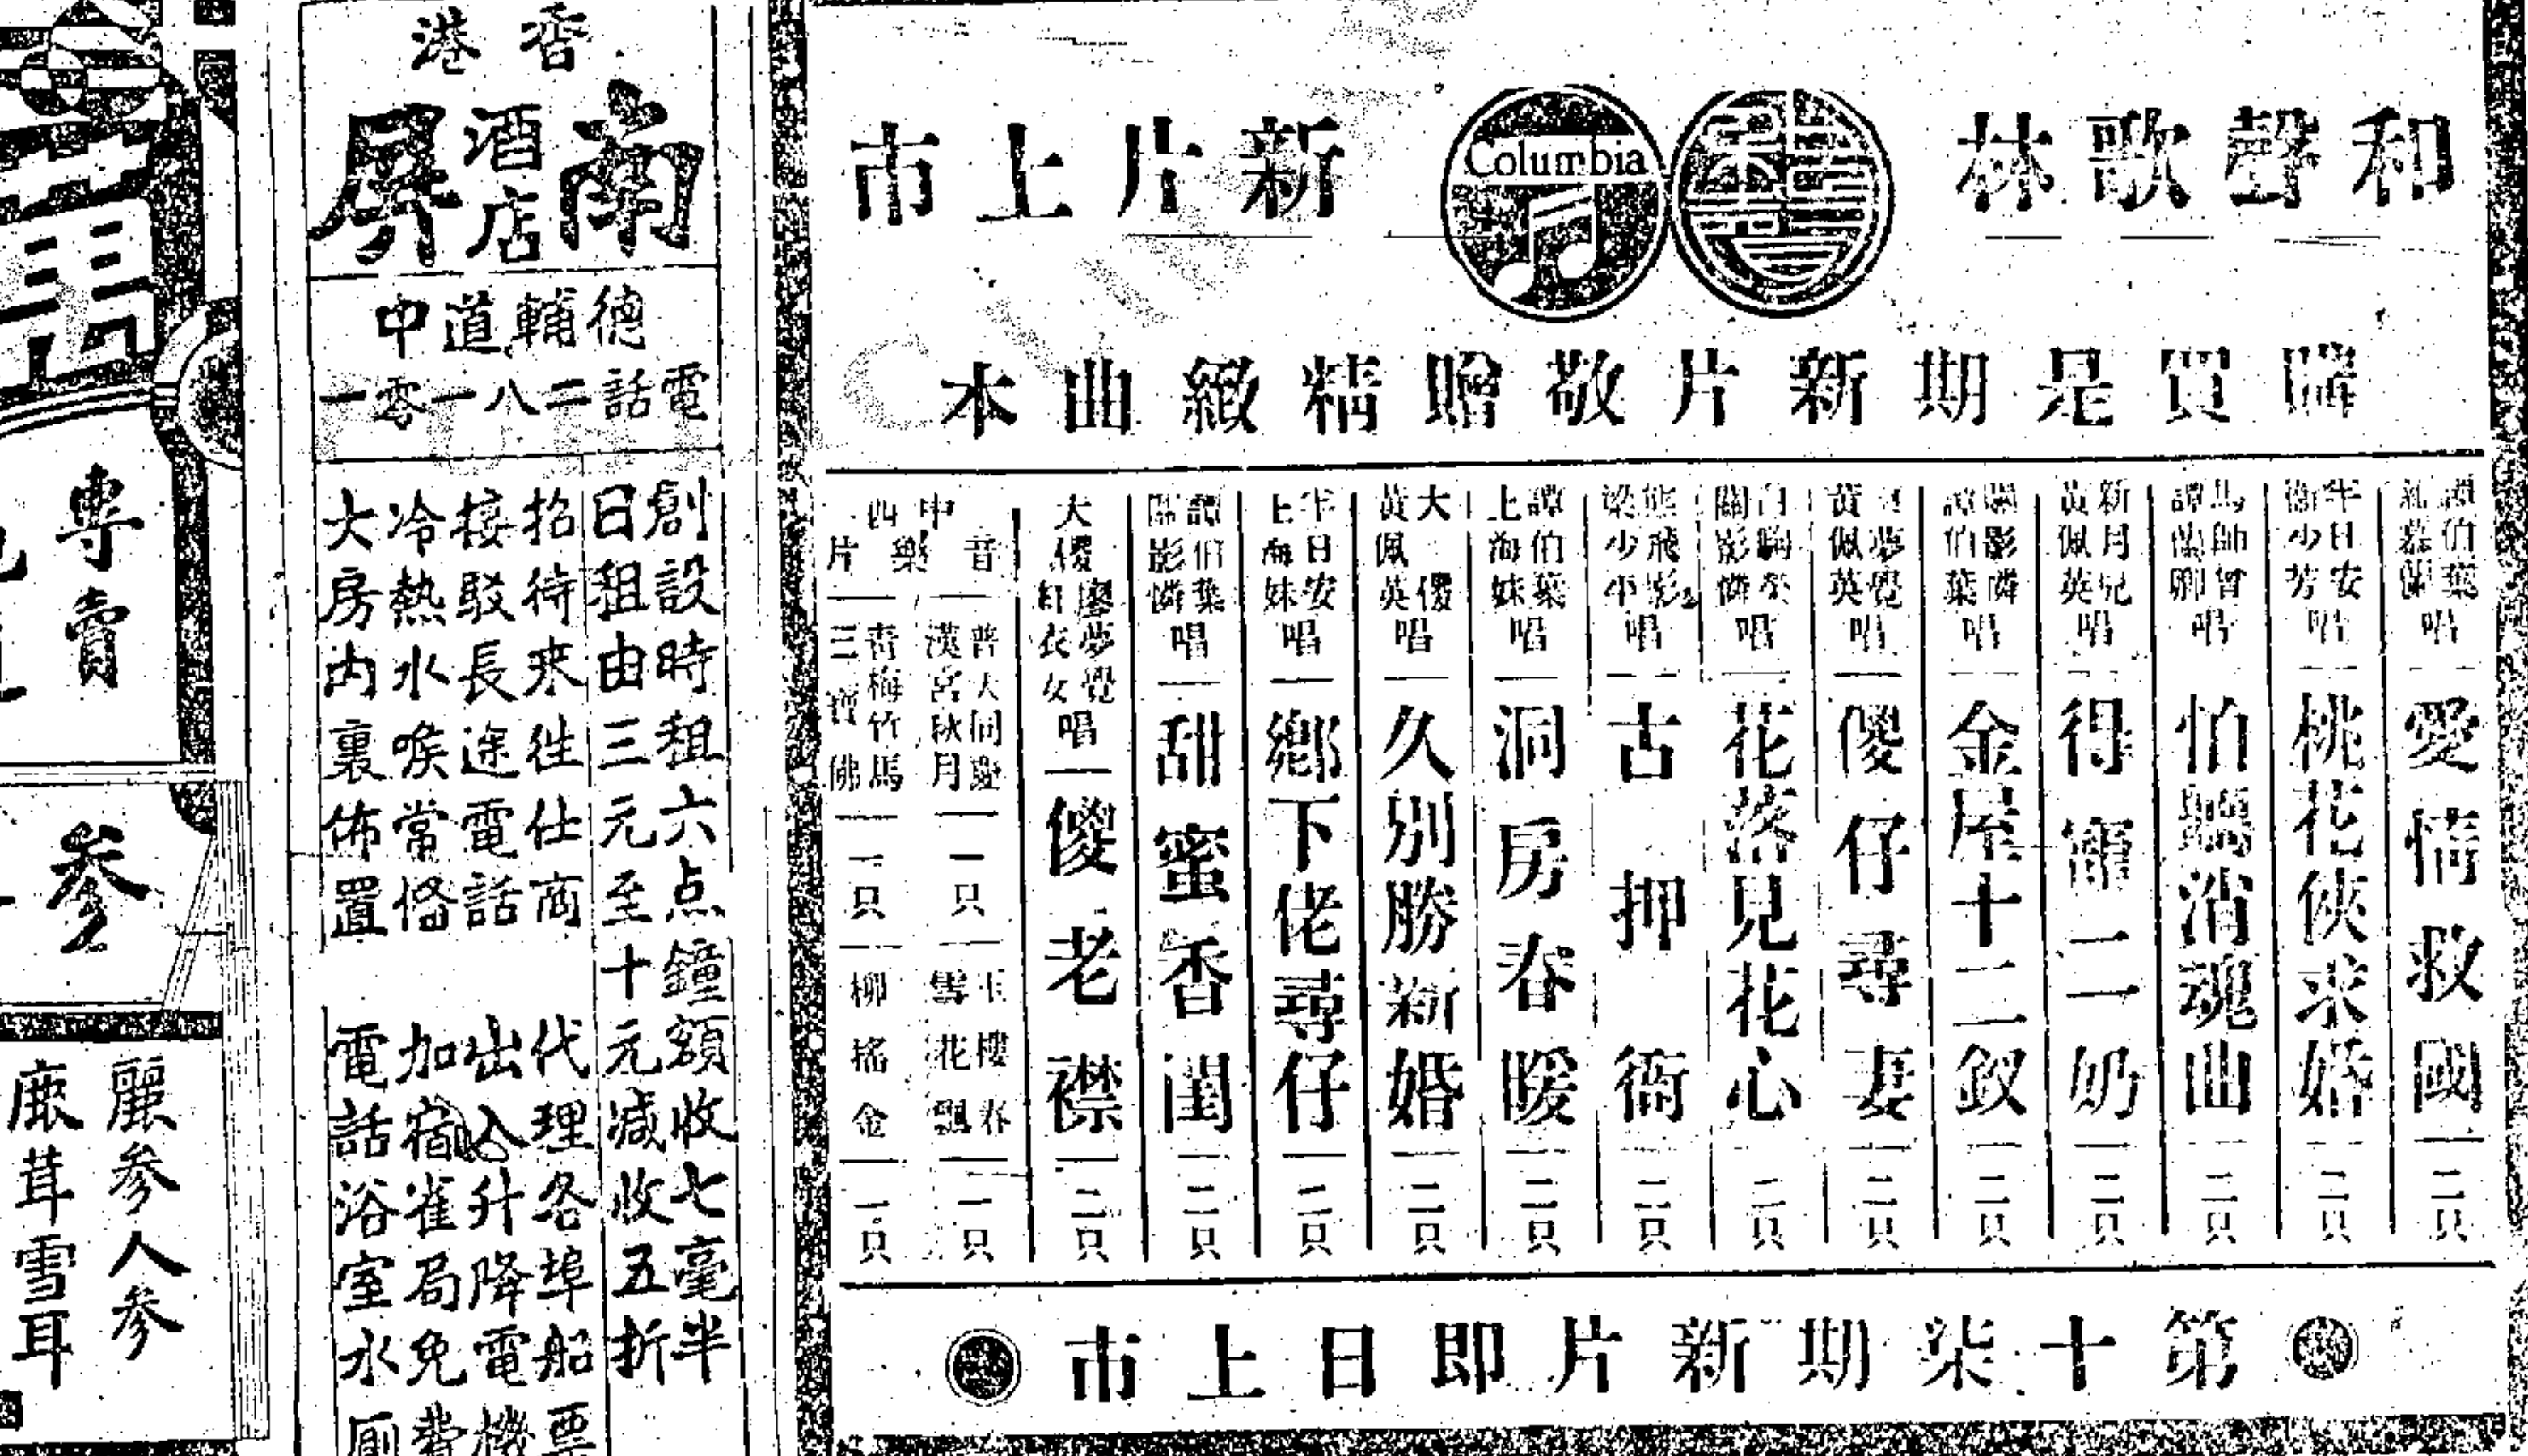 和聲歌林
Columbia
新片上市
購買是期新片敬贈精緻曲本
譚伯葉
唱
愛情救國
二只
半日安
唱
桃花俠求婚
二只
馬師曾
譚蘭卿
唱
怕聽消魂曲
二只
新月兒
黃佩英
唱
得寵二奶
二只
關影憐
譚伯葉
唱
金屋十二釵
二只
廖夢覺
黃佩英
唱
傻仔尋妻
二只
白駒榮
關影憐
唱
花落見花心
二只
熊飛影
梁少平
唱
古押衙
二只
譚伯葉
上海妹
唱
洞房春暖
二只
大傻
黃佩英
唱
久別勝新婚
二只
半日安
上海妹
唱
鄉下佬尋仔
二只
譚伯葉
關影憐
唱
甜蜜香閨
二只
大傻
廖夢覺
紅衣女
唱
傻老襟
二只
中西音樂片
普天同慶
漢宮秋月
一只
玉樓春
雪花飄
一只
青梅竹馬
三寶佛
一只
柳搖金
一只
第十柒期新片即日上市
香港
南屏
酒店
德輔道中
電話二八一零一
創設時租六点鐘額收七毫半
日租由三元至十元減收五折
招待來往仕商
代理各埠船票
接駁長途電話
出入升降電機
冷熱水喉常俻
加宿雀局免費
大房内裏佈置
電話浴室水厠
專賣
參
麗參人參
鹿茸雪耳